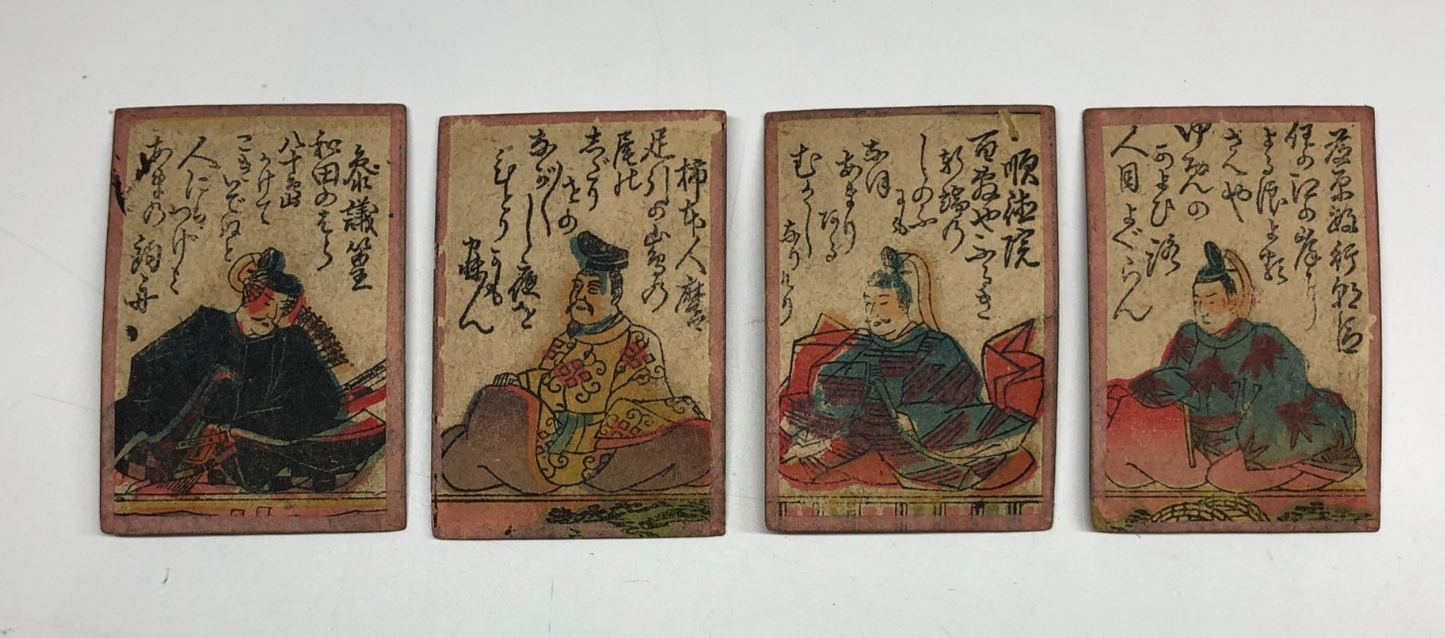 參議篁
和田のはら
八十嶋
かけて
こぎいでぬと
人には つげよ
あまの 釣舟
柿本人麿
足引の山鳥の
尾の
しだり
をの
なが〳〵
し夜を
ひとりかも
寐ん
順徳院
百敷やふるき
軒端の
しのぶ
にも
なほ
あまり
ある
むかし
なりけり
藤原敏行朝臣
住の江の岸に
よる浪よる
さへや
ゆめの
かよひ路
人目よぐらん